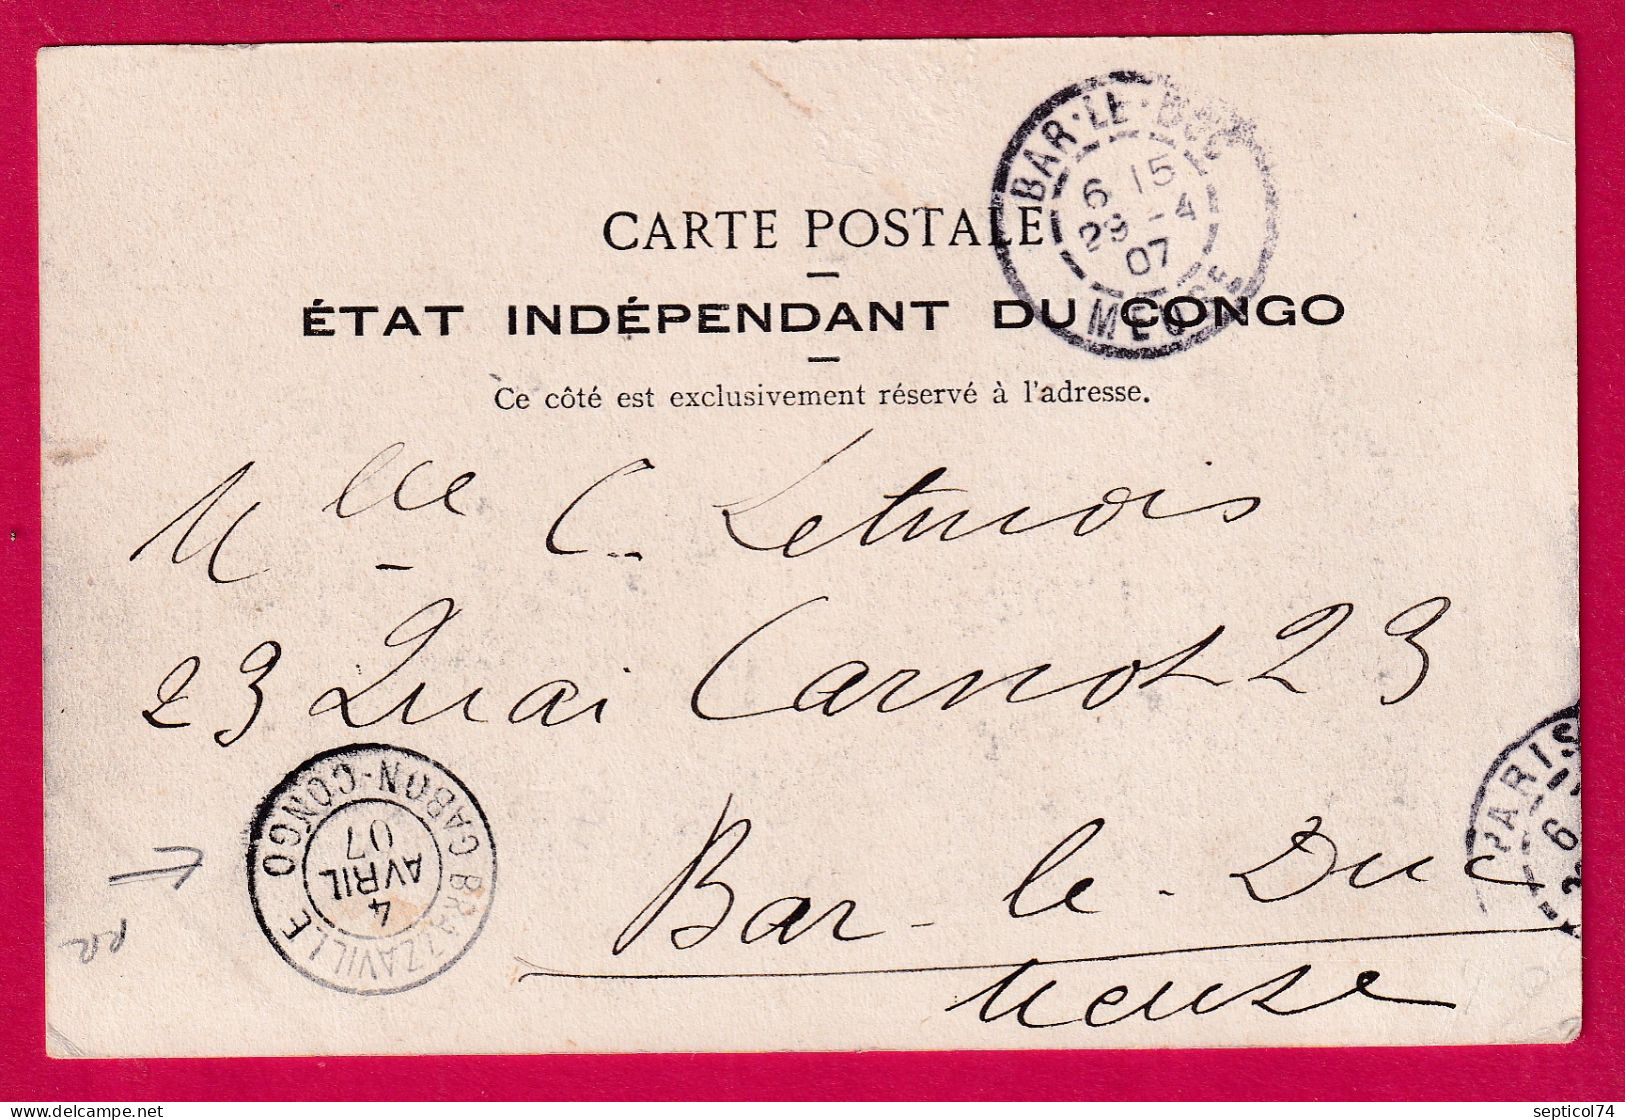 CARTE POSTALE
ÉTAT INDÉPENDANT DU CONGO
Ce côté est exclusivement réservé à l'adresse.
BAR-LE-DUC
6 15
29 -4
07
MEUSE
Mlle C. Letnois
23 Quai Carnot 23
Bar-le-Duc
Meuse
BRAZZAVILLE CONGO
GABON-CONGO
4
AVRIL
07
PARIS
6
septicol74